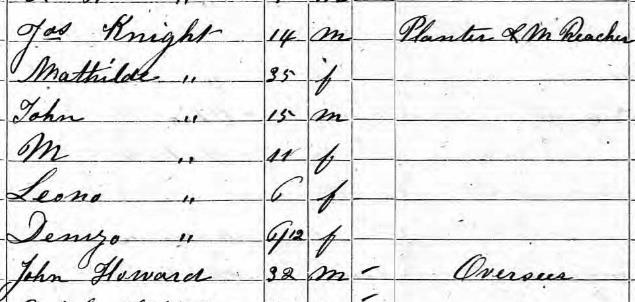 Jas Knight 14 m Planter & M Preacher
Mathilde " 35 f
John " 15 m
M " 11 f
Leono " 6 f
Demzo " 6/12 f
John Howard 32 m – Overseer